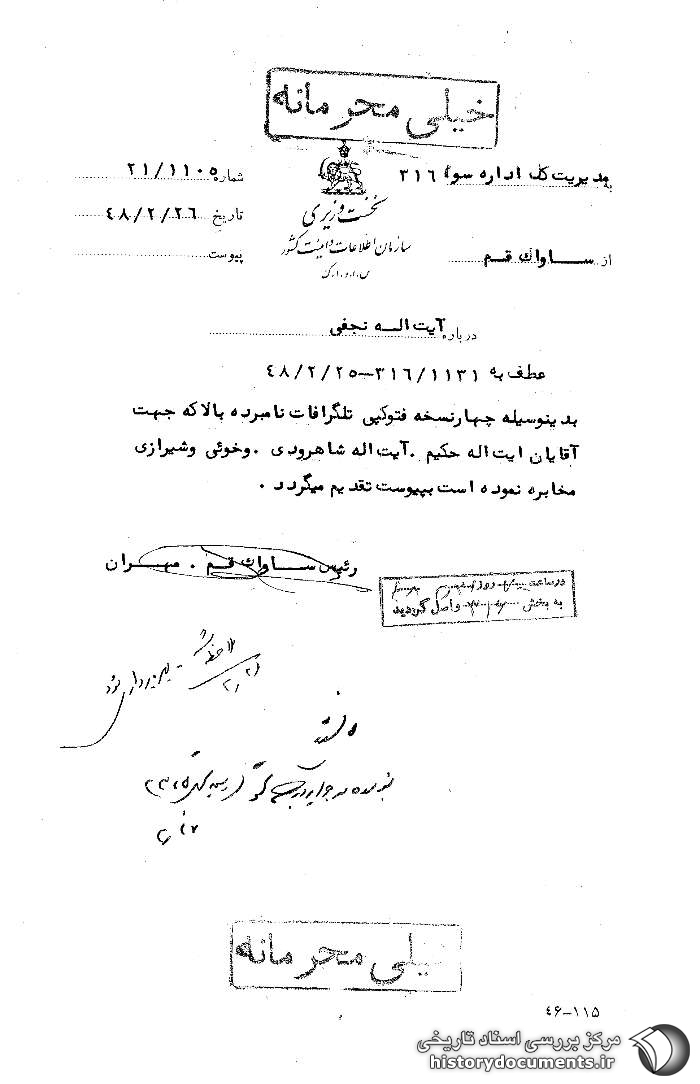 خیلی محرمانه
به مدیریت کل اداره سوم ۳۱۶
شماره ۲۱/۱۱۰۵
نخست وزیری
تاریخ ۴۸/۲/۲۶
سازمان اطلاعات و امنیت کشور
از ساواک قم
پیوست
س.ا.و.ا.ک
درباره آیت اله نجفی
عطف به ۳۱۶/۱۱۳۱-۴۸/۲/۲۵
بدینوسیله چهارنسخه فتوکپی تلگرافات نامبرده بالا که جهت
آقایان ایت اله حکیم . آیت اله شاهرودی . وخوئی وشیرازی
مخابره نموده است بپیوست تقدیم میگردد .
رئیس ساواک قم . مهران
در ساعت روز
به بخش واصل گردید
ملاحظه شد
۲/۳۱
خیلی محرمانه
۴۶-۱۱۵
مرکز بررسی اسناد تاریخی
historydocuments.ir